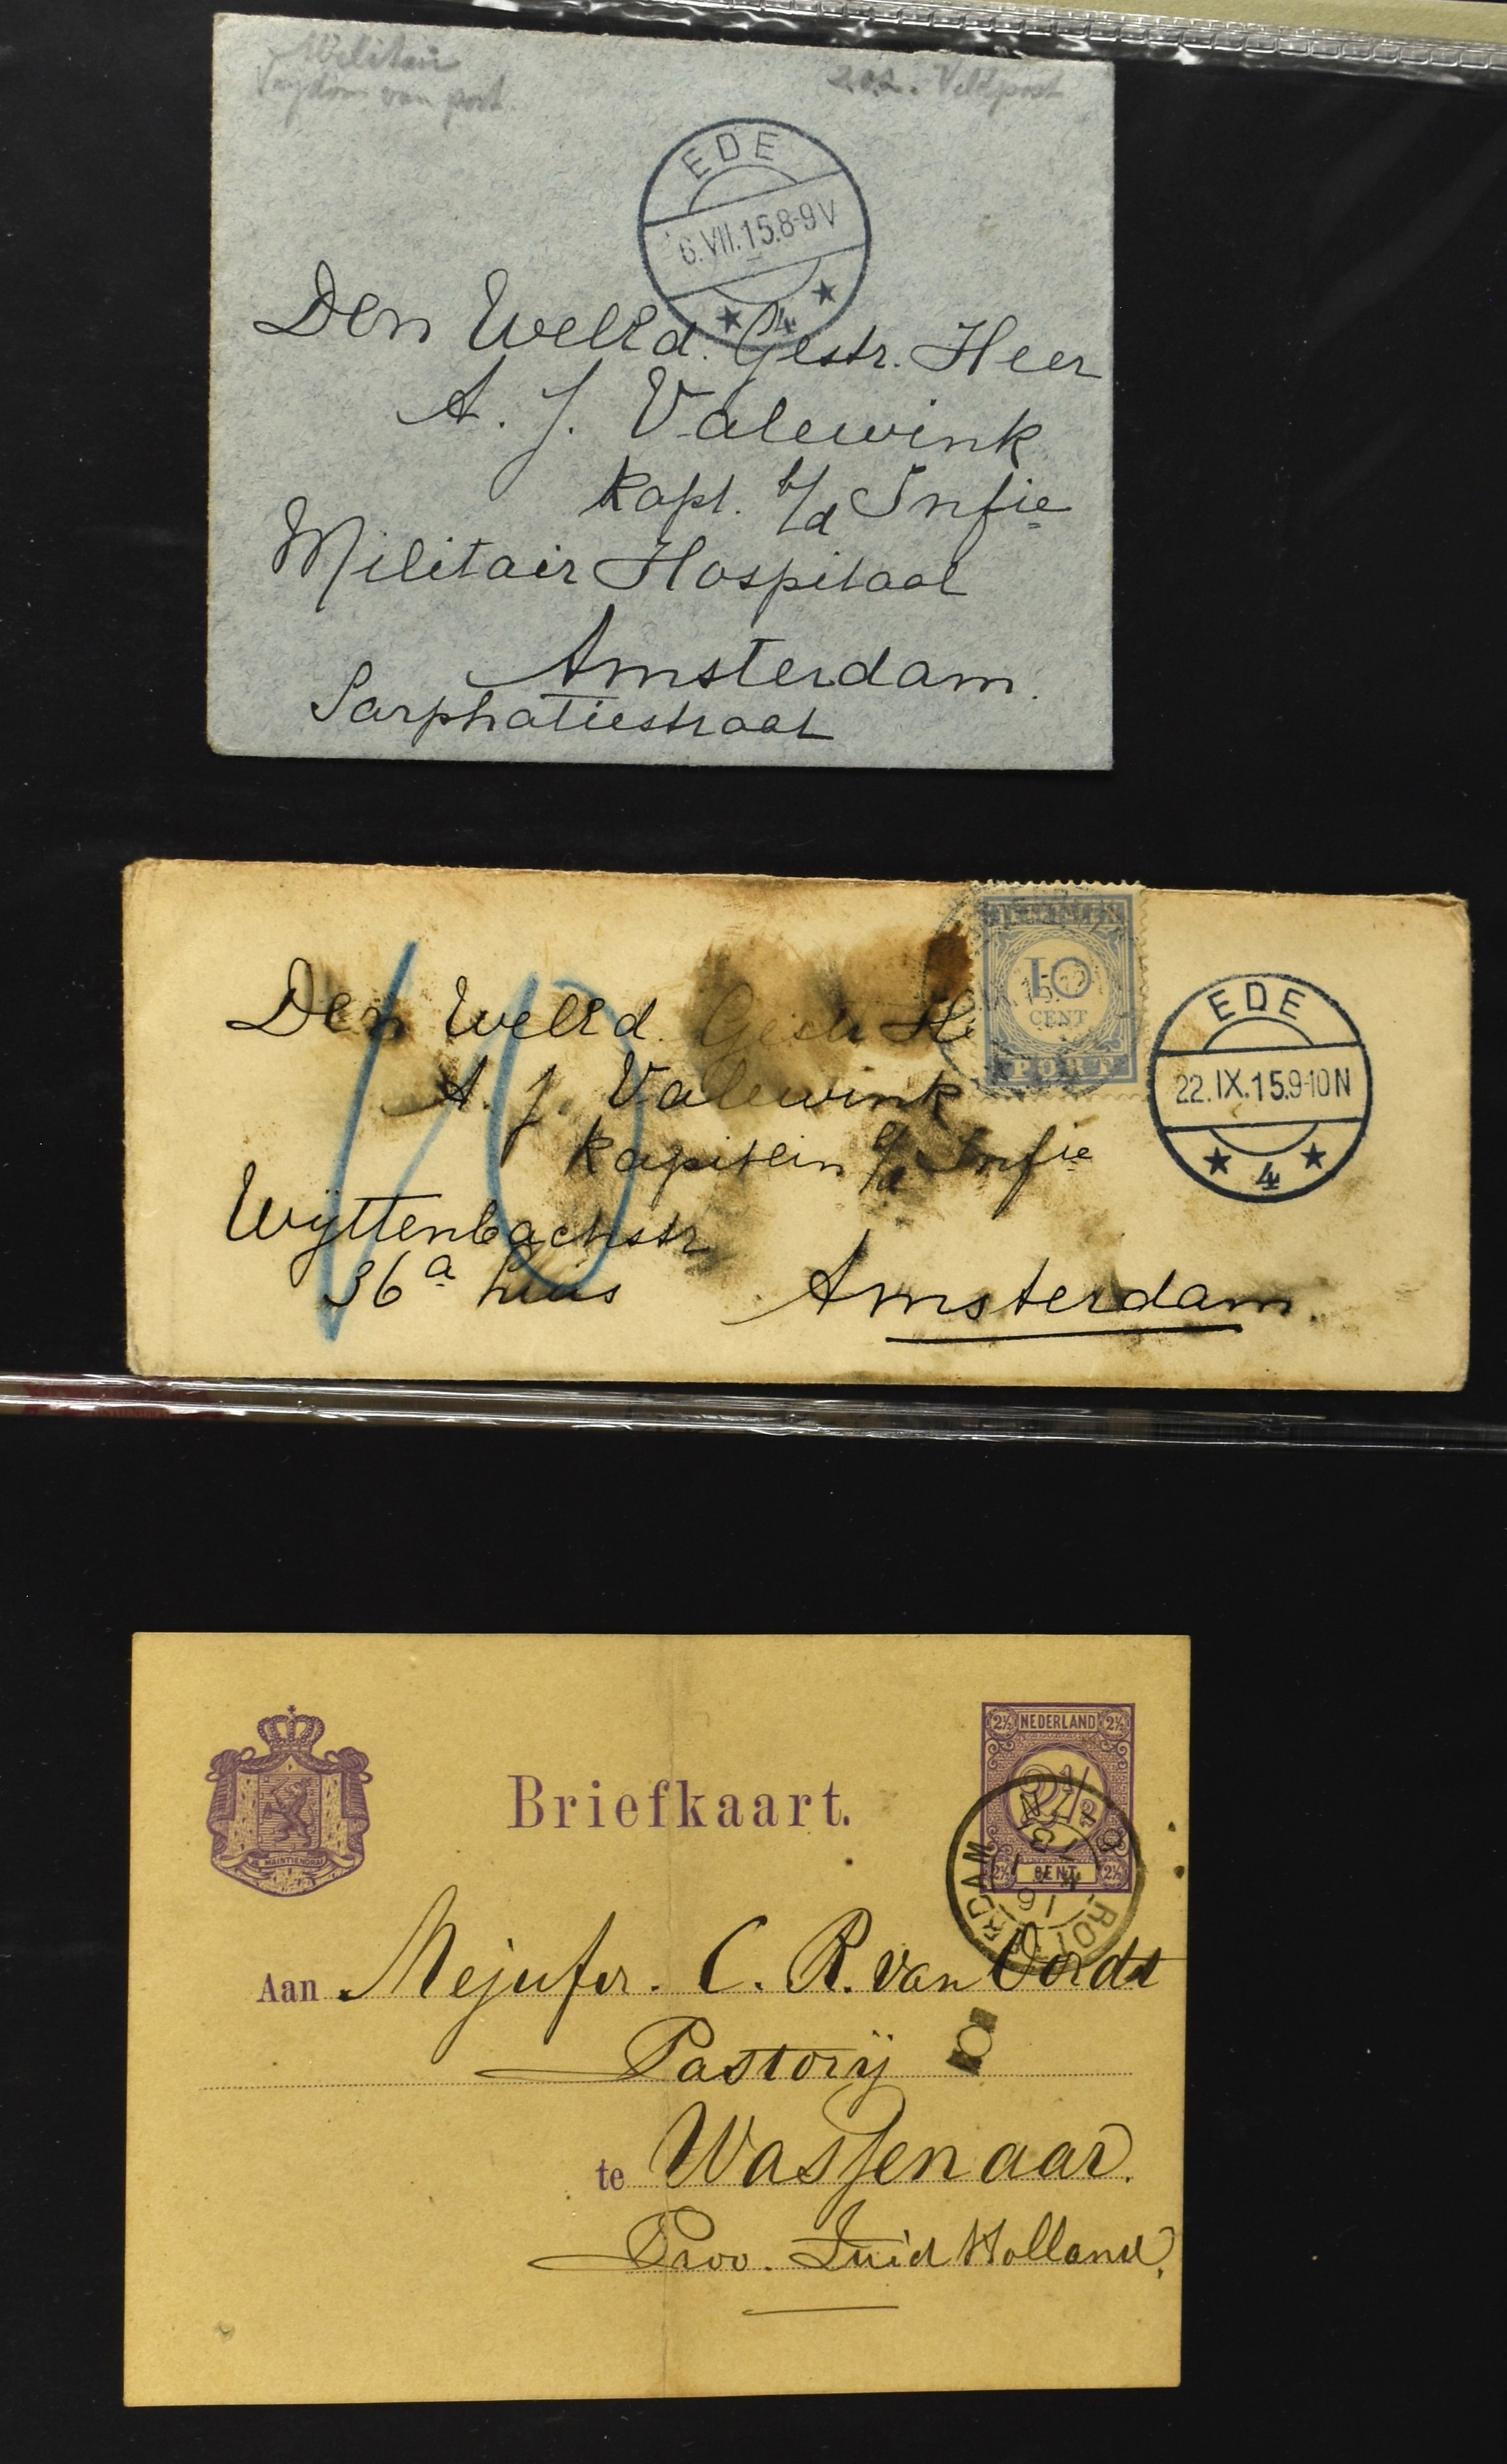 Militair
Vrijdom van port.
Veldpost
EDE
6.VII.15.8-9V
4
Den WelEd. Gestr. Heer
A. J. Valewink
Kapt. b/d Infie
Militair Hospitaal
Amsterdam.
Sarphatiestraat
10
CENT
PORT
EDE
22.IX.15.9-10N
4
10
Den WelEd. Gestr. He
A. J. Valewink
Kapitein b/d Infie
Wijttenbachstr
36a huis
Amsterdam.
2½ NEDERLAND 2½
2½
2½ CENT 2½
JE MAINTIENDRAI
Briefkaart.
Aan Mejufvr. C. R. van Oordt
Pastorij
te Wassenaar.
Prov. Zuid Holland.